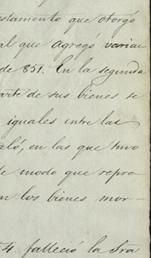 estamento que otorgó
al que Agregó varias
de 851. En la segunda
arte de sus bienes se
iguales entre las
aló, en las que tuvo
te modo que repro
n los bienes mor-
4. falleció la Sra